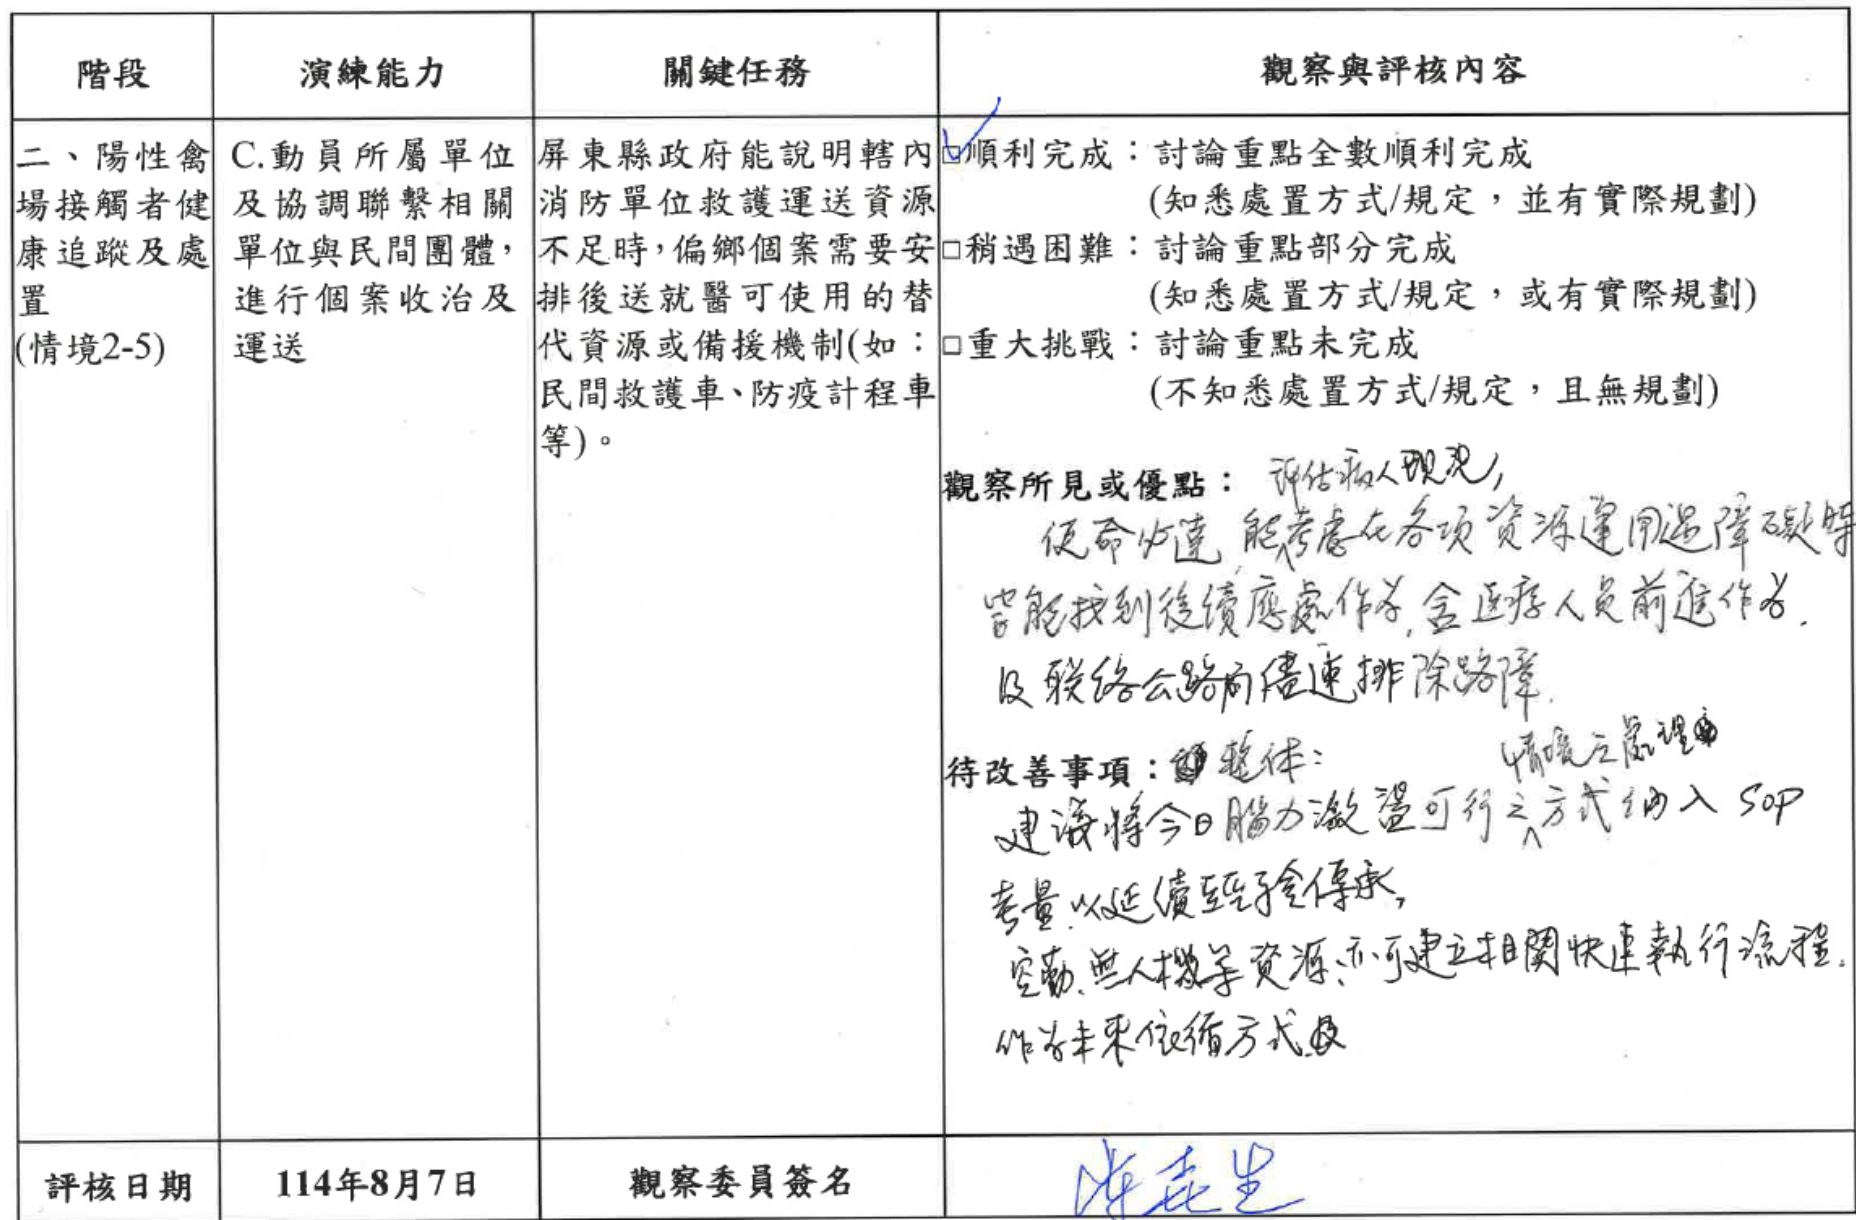 階段
演練能力
關鍵任務
觀察與評核內容
二、陽性禽
場接觸者健
康追蹤及處
置
(情境2-5)
C.動員所屬單位
及協調聯繫相關
單位與民間團體，
進行個案收治及
運送
屏東縣政府能說明轄內
消防單位救護運送資源
不足時，偏鄉個案需要安
排後送就醫可使用的替
代資源或備援機制(如：
民間救護車、防疫計程車
等)。
□順利完成：討論重點全數順利完成
(知悉處置方式/規定，並有實際規劃)
□稍遇困難：討論重點部分完成
(知悉處置方式/規定，或有實際規劃)
□重大挑戰：討論重點未完成
(不知悉處置方式/規定，且無規劃)
觀察所見或優點：評估病人現況，
使命必達，能考慮在各項資源運用遇障礙時
皆能找到後續應處作為，含医療人員前進作為.
及聯絡公路局儘速排除路障.
待改善事項：整体：
情境之處理
建議將今日腦力激盪可行之方式納入SOP
考量，以延續經驗傳承，
空勤、無人機等資源，亦可建立相関快速執行流程.
作為未來依循方式
評核日期
114年8月7日
觀察委員簽名